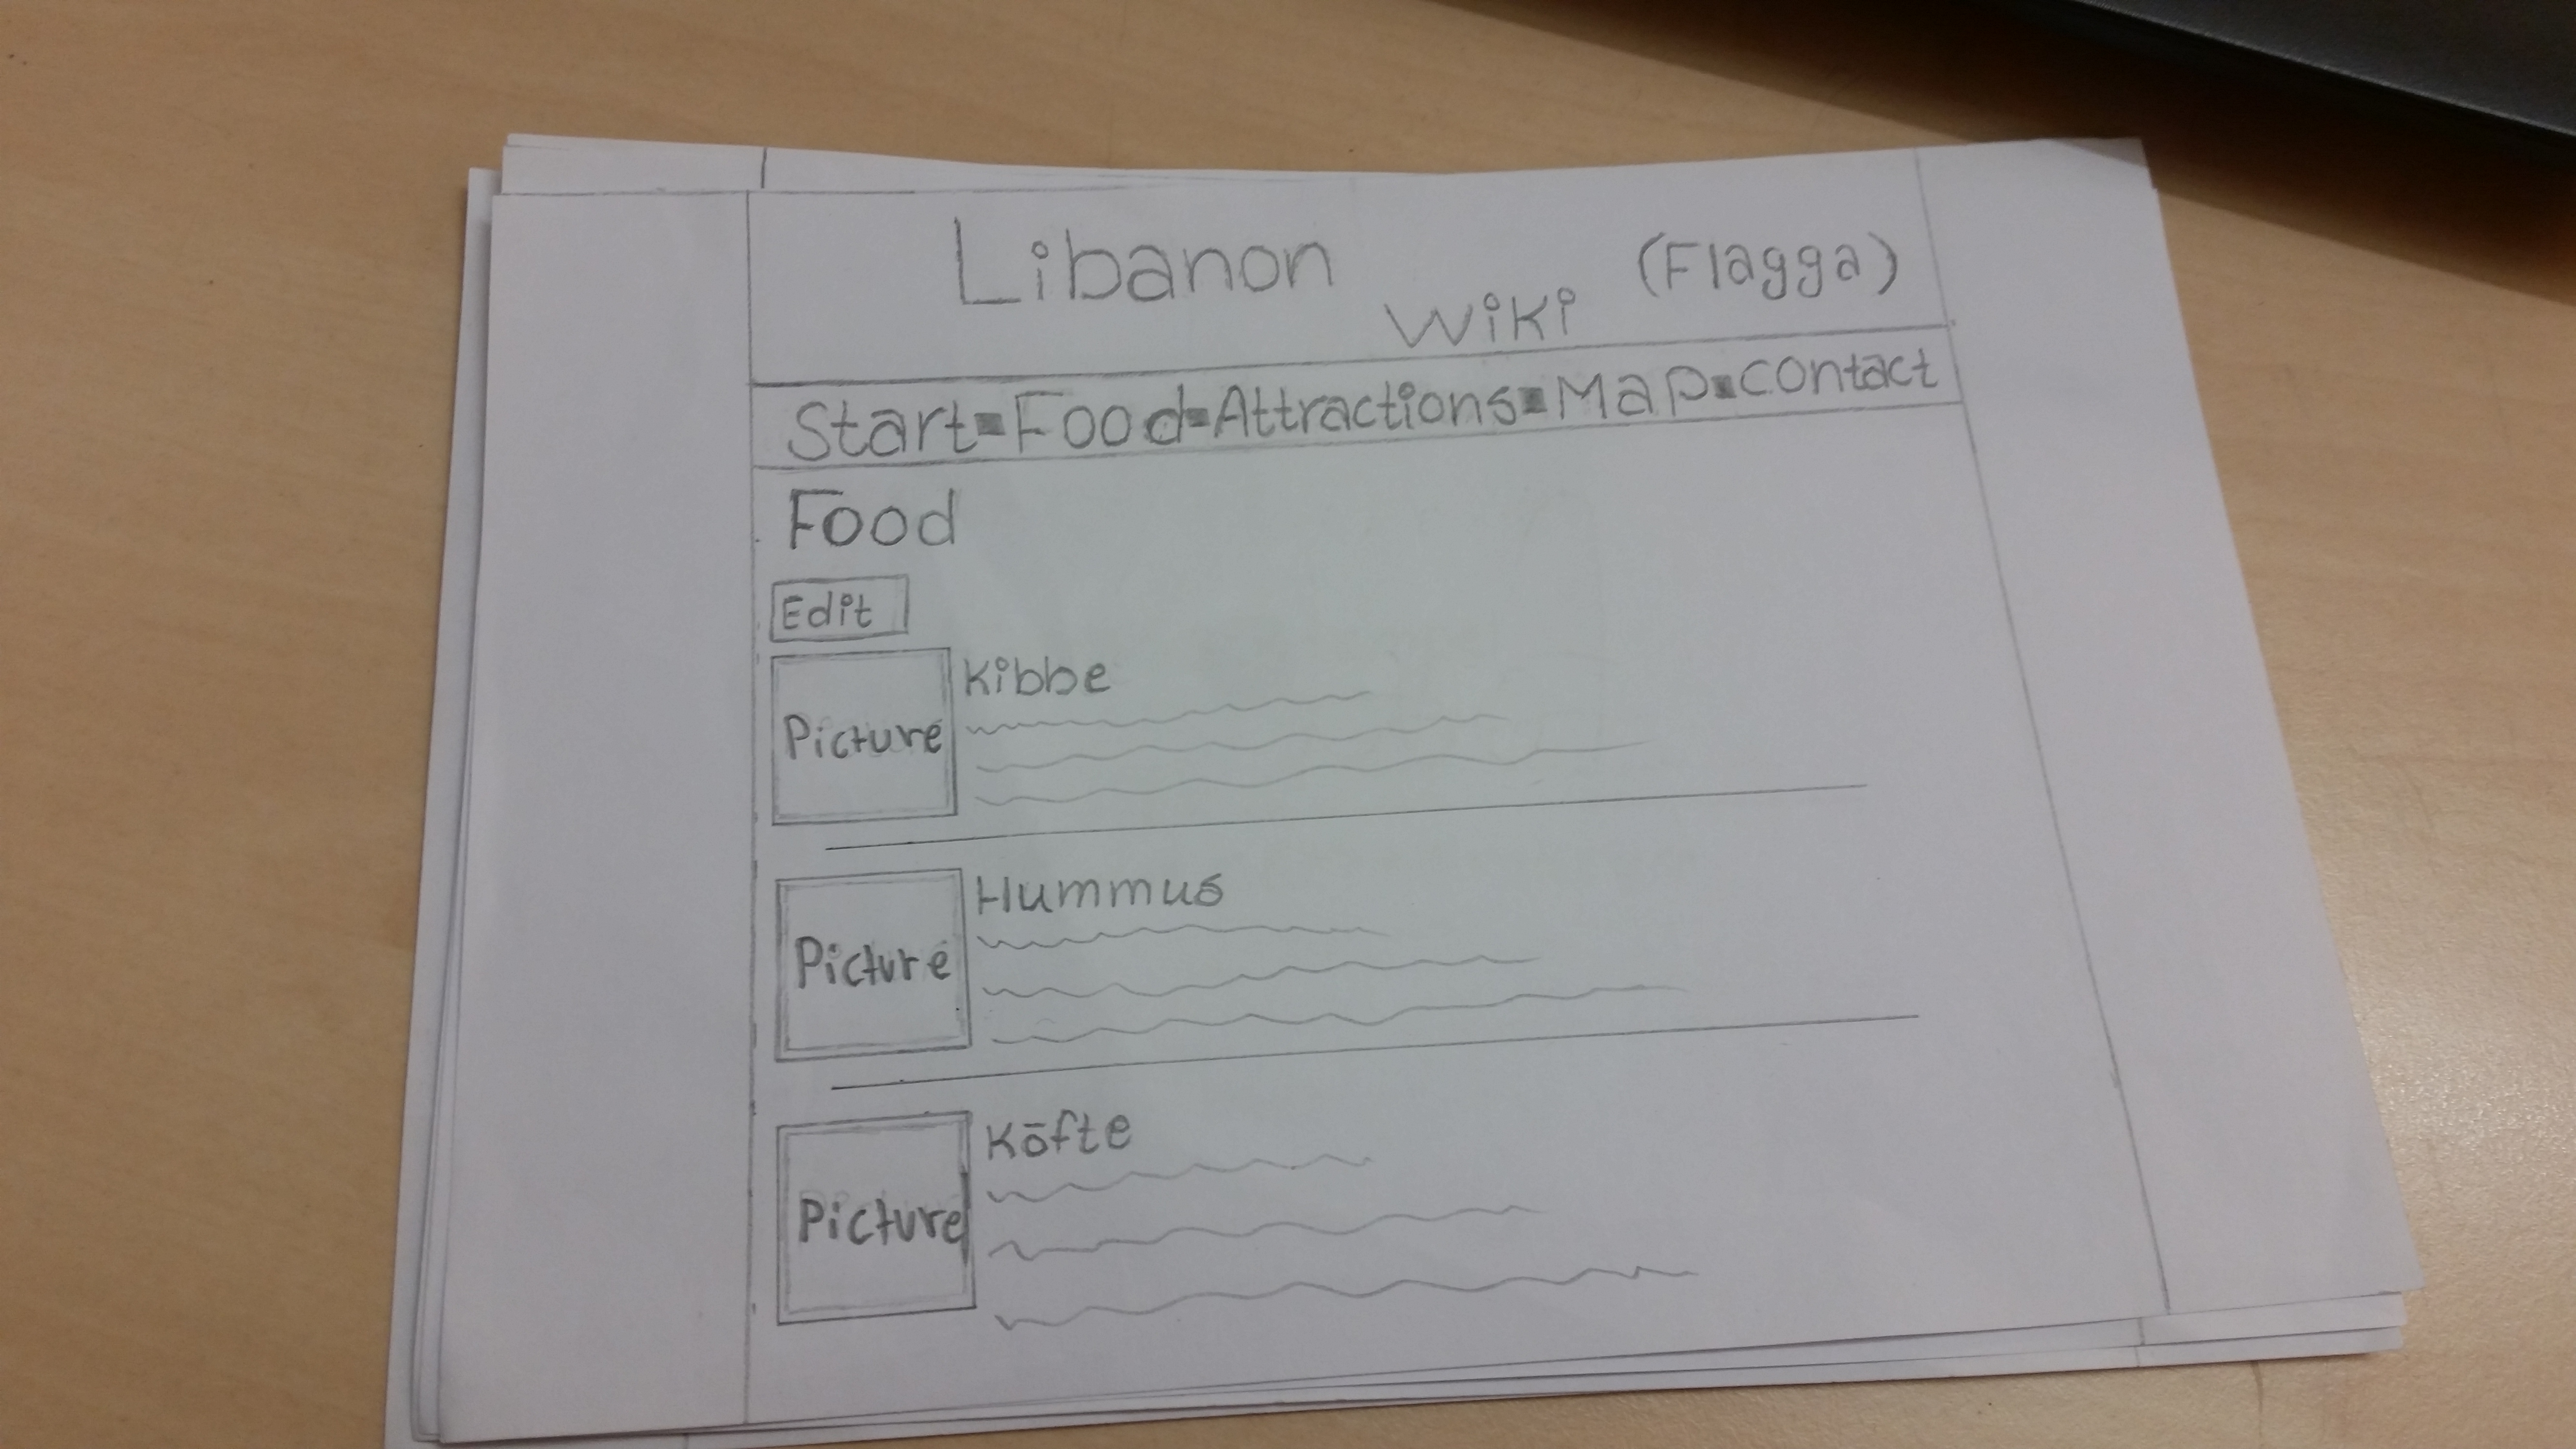 Libanon
wiki
(Flagga)
Start-Food-Attractions-Map-contact
Food
Edit
Picture
Kibbe
Picture
Hummus
Picture
Köfte